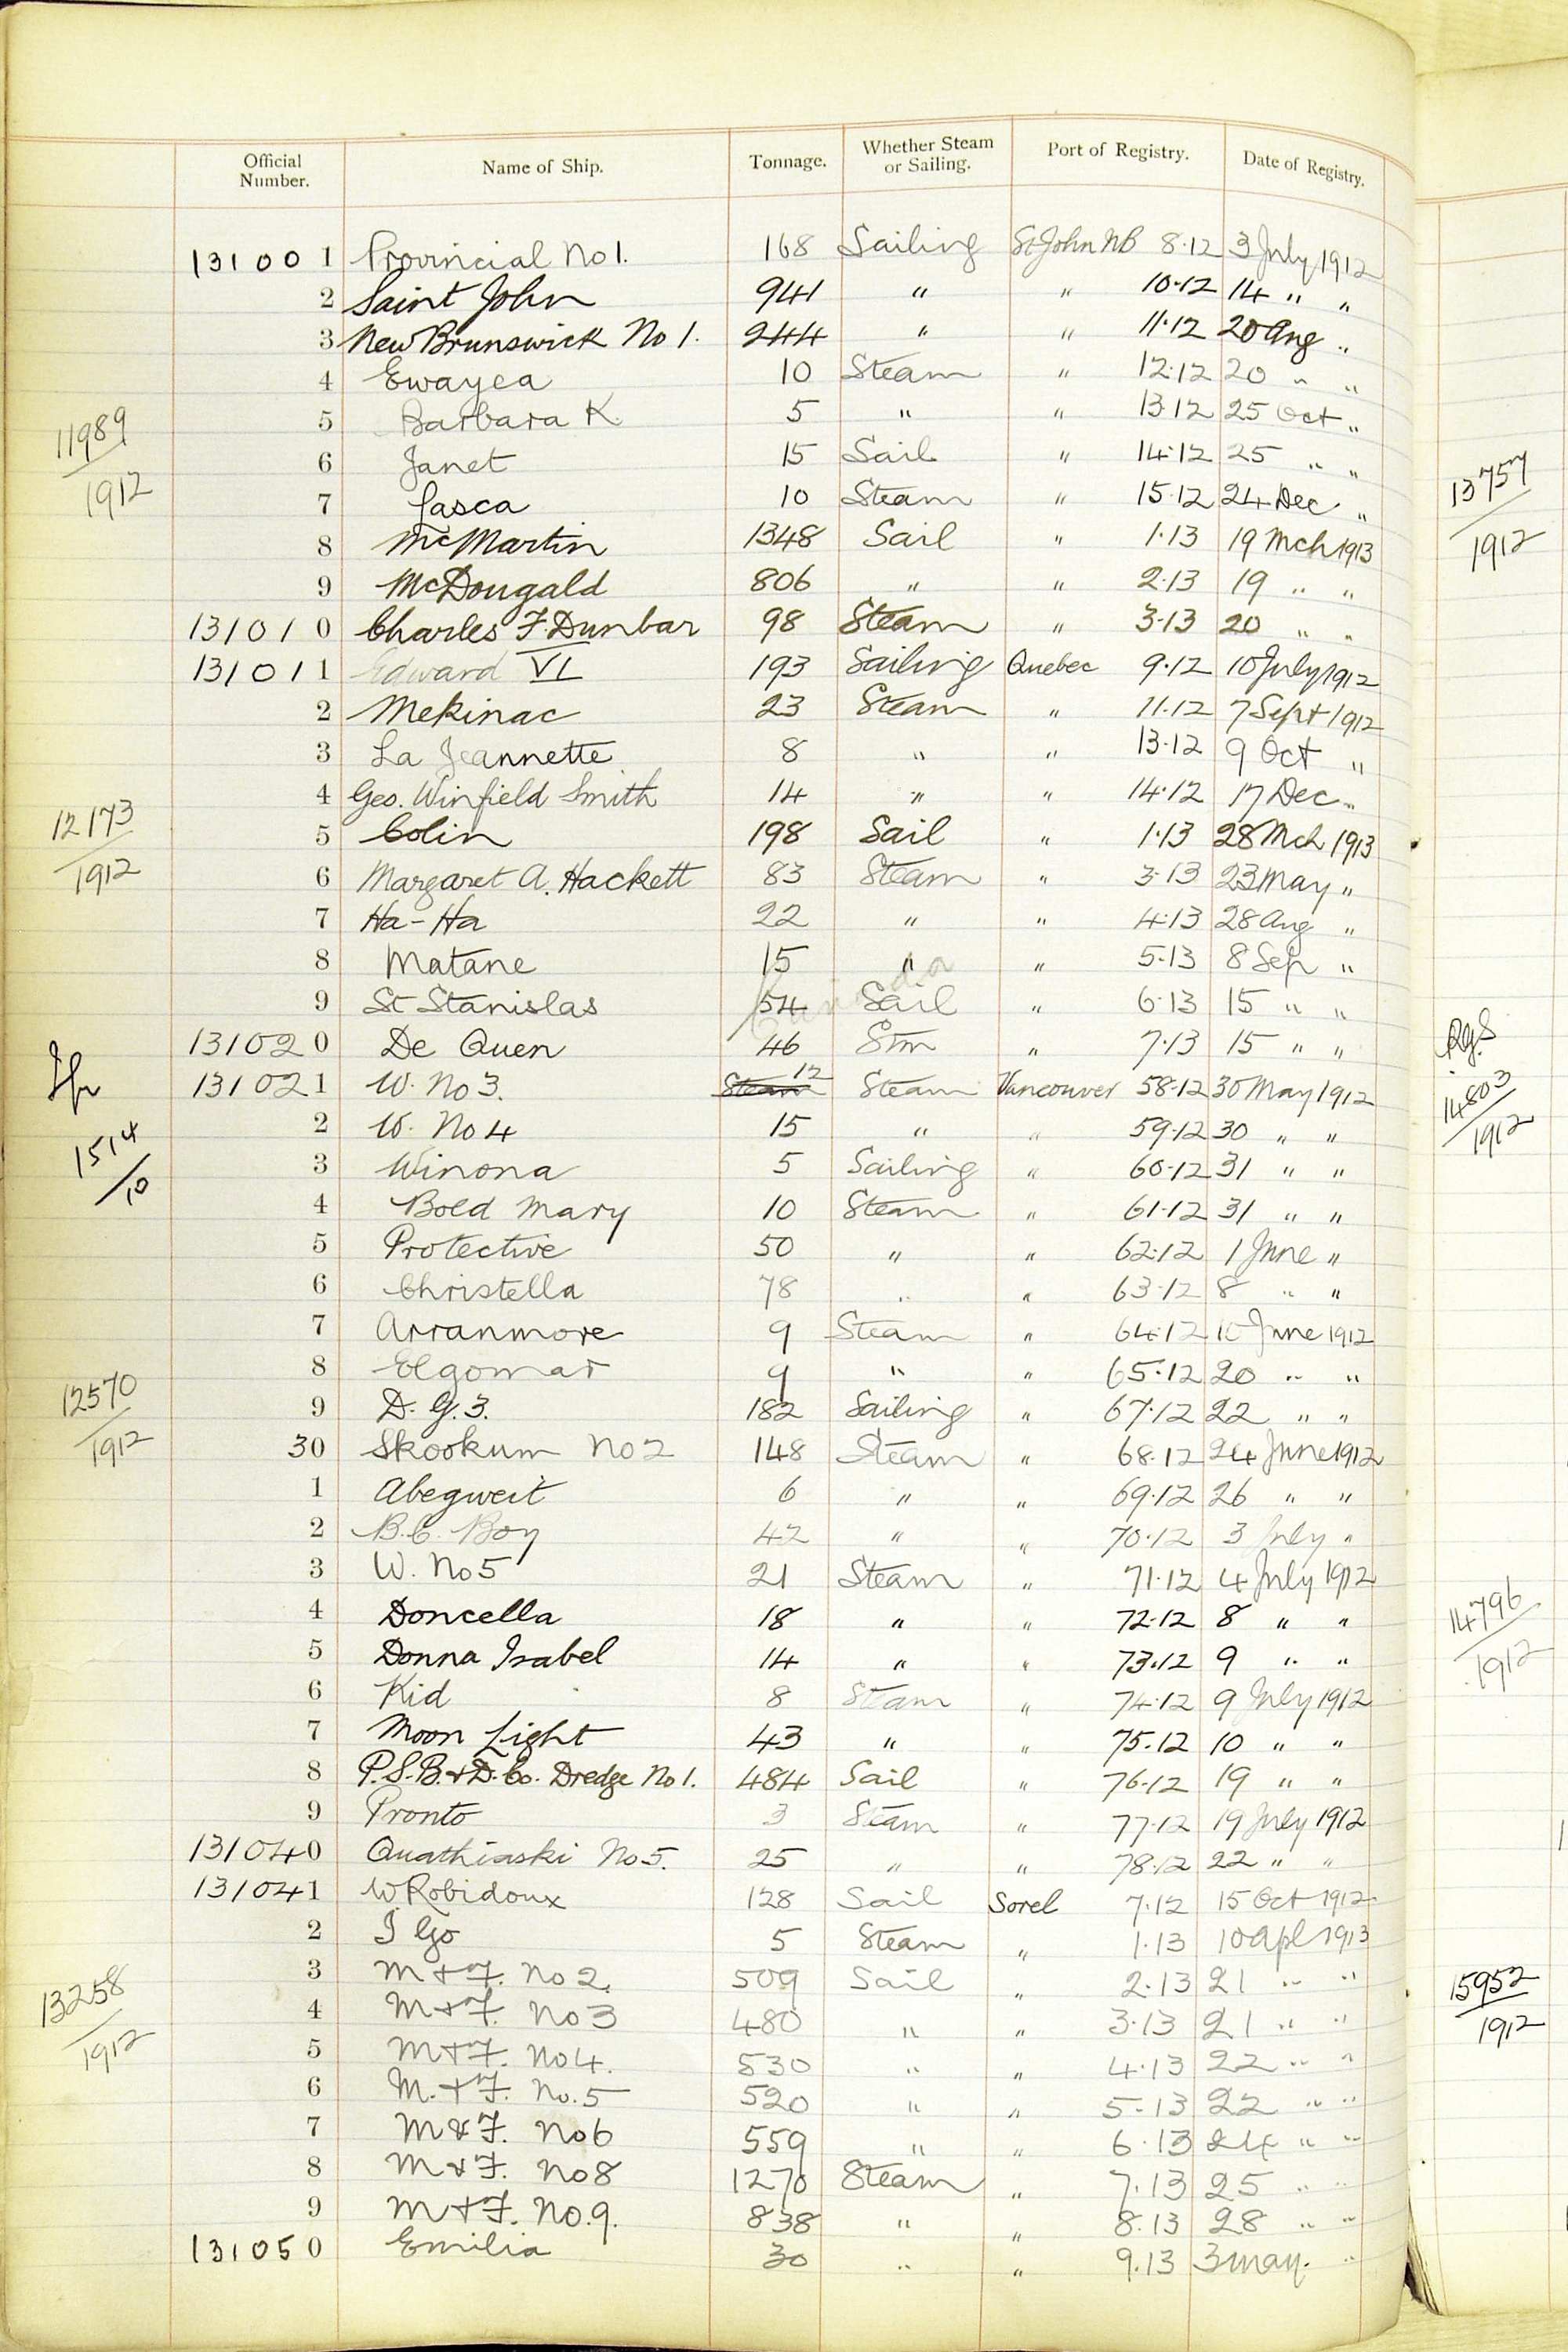 Official Number. Name of Ship. Tonnage. Whether Steam or Sailing. Port of Registry. Date of Registry.
131001 Provincial No 1. 168 Sailing St John NB 8.12 3 July 1912
2 Saint John 941 " " 10.12 14 " "
3 New Brunswick No 1. 244 " " 11.12 20 Aug "
4 Ewayea 10 Steam " 12.12 20 " "
11989/1912
5 Barbara K. 5 " " 13.12 25 Oct "
6 Janet 15 Sail " 14.12 25 " "
7 Lasca 10 Steam " 15.12 24 Dec "
13757/1912
8 McMartin 1348 Sail " 1.13 19 Mch 1913
9 McDougald 806 " " 2.13 19 " "
131010 Charles F. Dunbar 98 Steam " 3.13 20 " "
131011 Edward VI 193 Sailing Quebec 9.12 10 July 1912
2 Mekinac 23 Steam " 11.12 7 Sept 1912
3 La Jeannette 8 " " 13.12 9 Oct "
4 Geo. Winfield Smith 14 " " 14.12 17 Dec "
12173/1912
5 Colin 198 Sail " 1.13 28 Mch 1913
6 Margaret A. Hackett 83 Steam " 3.13 23 May "
7 Ha-Ha 22 " " 4.13 28 Aug "
8 Matane 15 " " 5.13 8 Sep "
Canada
9 St Stanislas 54 Sail " 6.13 15 " "
131020 De Quen 46 Stm " 7.13 15 " "
131021 W. No 3. Steam 12 Steam Vancouver 58.12 30 May 1912
14803/1912
2 W. No 4 15 " " 59.12 30 " "
1514/10
3 Winona 5 Sailing " 60.12 31 " "
4 Bold Mary 10 Steam " 61.12 31 " "
5 Protective 50 " " 62.12 1 June "
6 Christella 78 " " 63.12 8 " "
7 Arranmore 9 Steam " 64.12 10 June 1912
8 Elgomar 9 " " 65.12 20 " "
12570/1912
9 D. G. 3. 182 Sailing " 67.12 22 " "
30 Skookum No 2 148 Steam " 68.12 24 June 1912
1 Abegweit 6 " " 69.12 26 " "
2 B.C. Boy 42 " " 70.12 3 July "
3 W. No 5 21 Steam " 71.12 4 July 1912
4 Doncella 18 " " 72.12 8 " "
14796/1912
5 Donna Isabel 14 " " 73.12 9 " "
6 Kid 8 Steam " 74.12 9 July 1912
7 Moon Light 43 " " 75.12 10 " "
8 P.S.B. & D. Co. Dredge No 1. 484 Sail " 76.12 19 " "
9 Pronto 3 Steam " 77.12 19 July 1912
131040 Quathiaski No 5. 25 " " 78.12 22 " "
131041 W Robidoux 128 Sail Sorel 7.12 15 Oct 1912
2 I Go 5 Steam " 1.13 10 Apl 1913
3 M & F. No 2. 509 Sail " 2.13 21 " "
13258/1912
15952/1912
4 M & F. No 3 480 " " 3.13 21 " "
5 M & F. No 4. 530 " " 4.13 22 " "
6 M. & F. No. 5 520 " " 5.13 22 " "
7 M & F. No 6 559 " " 6.13 24 " "
8 M & F. No 8 1270 Steam " 7.13 25 " "
9 M & F. No. 9. 838 " " 8.13 28 " "
131050 Emilia 30 " " 9.13 3 May. "